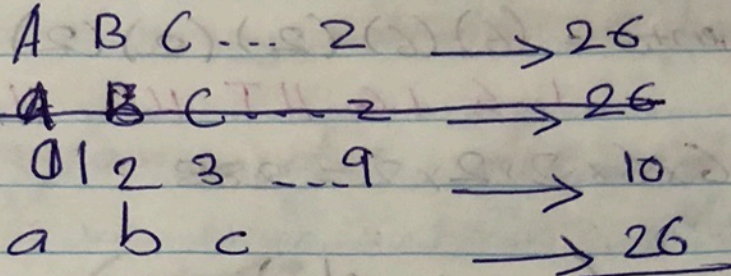 A B C .... Z → 26
A B C .... Z → 26
0 1 2 3 ... 9 → 10
a b c → 26